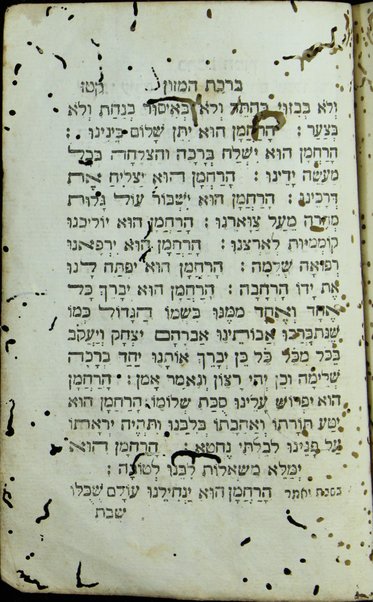 ברכת המזון קטז
ולא בבזוי בהתר ולא באיסור בנחת ולא
בצער : הרחמן הוא יתן שלום בינינו :
הרחמן הוא ישלח ברכה והצלחה בכל
מעשה ידינו : הרחמן הוא יצליח את
דרכינו : הרחמן הוא ישבור עול גלות
מהרה מעל צוארנו : הרחמן הוא יוליכנו
קוממיות לארצנו : הרחמן הוא ירפאנו
רפואה שלמה : הרחמן הוא יפתח לנו
את ידו הרחבה : הרחמן הוא יברך כל
אחד ואחד ממנו בשמו הגדול כמו
שנתברכו אבותינו אברהם יצחק ויעקב
בכל מכל כל כן יברך אותנו יחד ברכה
שלימה וכן יהי רצון ונאמר אמן : הרחמן
הוא יפרוש עלינו סכת שלומו : הרחמן הוא
יטע תורתו ואהבתו בלבנו ותהיה יראתו
על פנינו לבלתי נחטא : הרחמן הוא
ימלא משאלות לבנו לטובה :
בשבת יאמר הרחמן הוא ינחילנו עולם שכולו
שבת